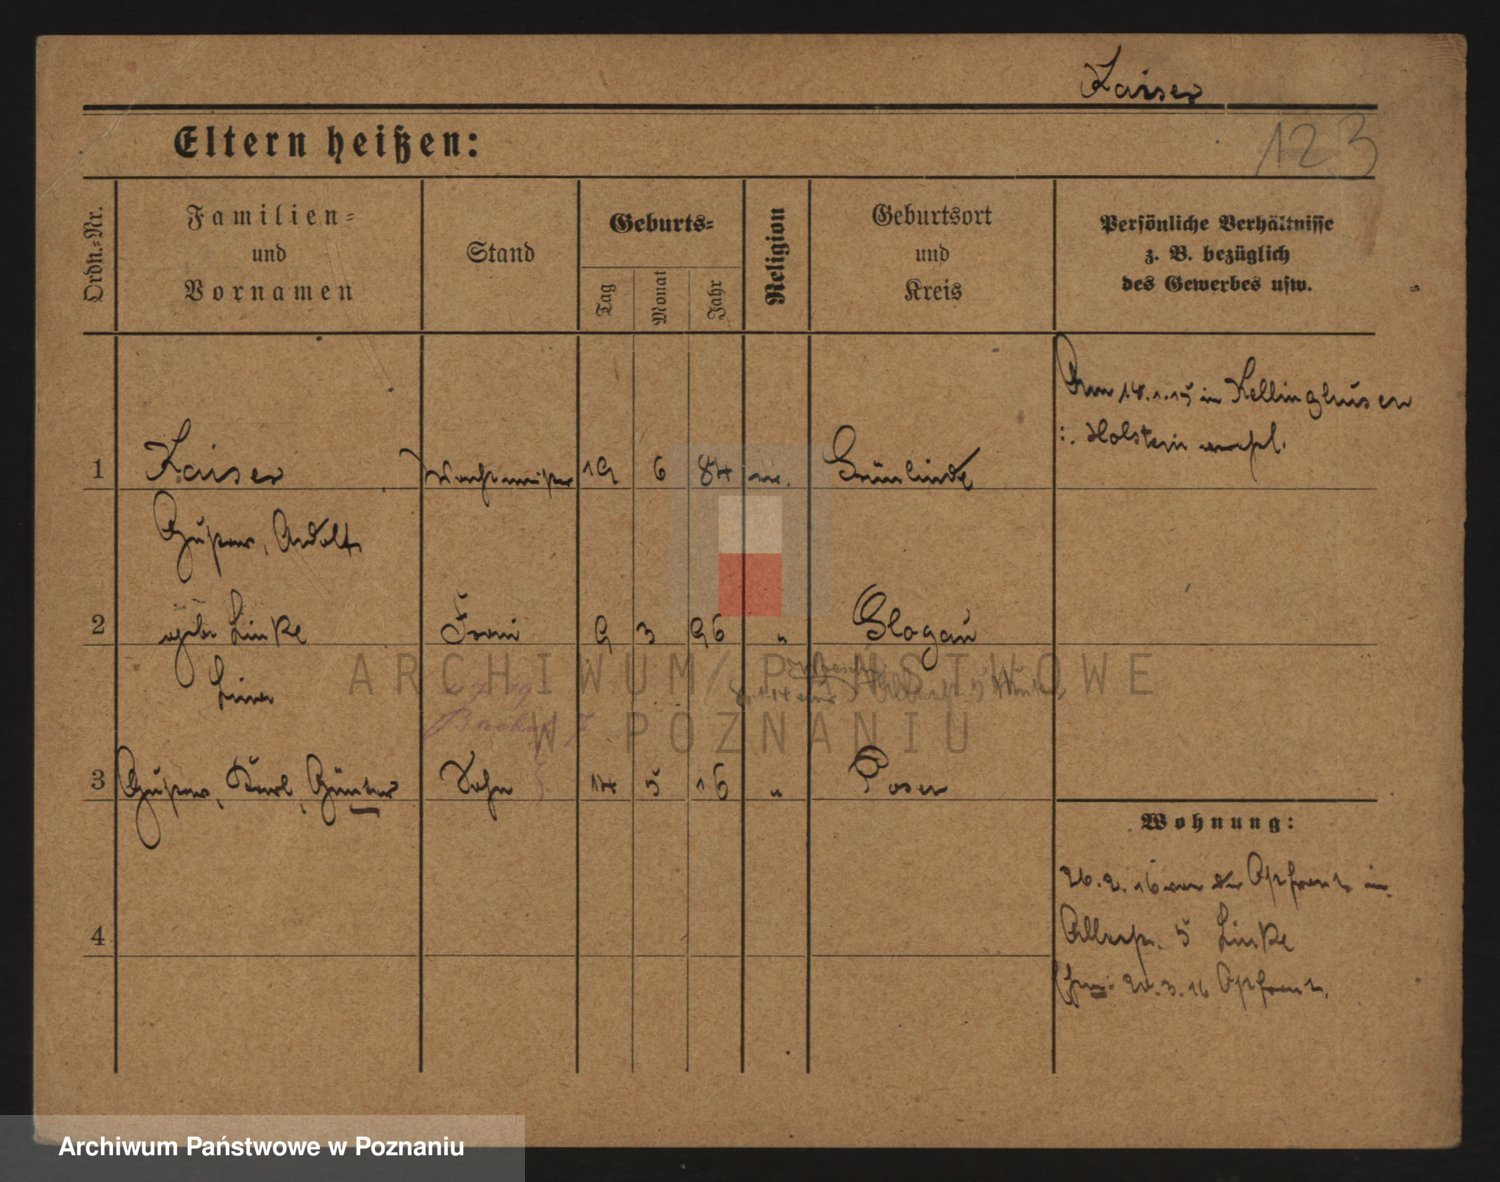 Kaiser
Eltern heißen:
123
Ordn.-Nr.
Familien-
und
Vornamen
Stand
Geburts-
Tag
Monat
Jahr
Religion
Geburtsort
und
Kreis
Persönliche Verhältnisse
z. B. bezüglich
des Gewerbes usw.
Am 14.1.15 in Kellinghusen
i. Holstein
1 Kaiser Wachtmeister 19 6 84 Grünlinde
Gustav, Adolf
2 geb. Linke Frau 9 3 96 " Glogau
ARCHIWUM PAŃSTWOWE
W POZNANIU
3 Gustav, Karl, Günter Sohn 14 5 16 " Posen
Wohnung:
26.2.16 von der Ostfront in
5 Linke
4
20.3.16 Ostfront.
Archiwum Państwowe w Poznaniu